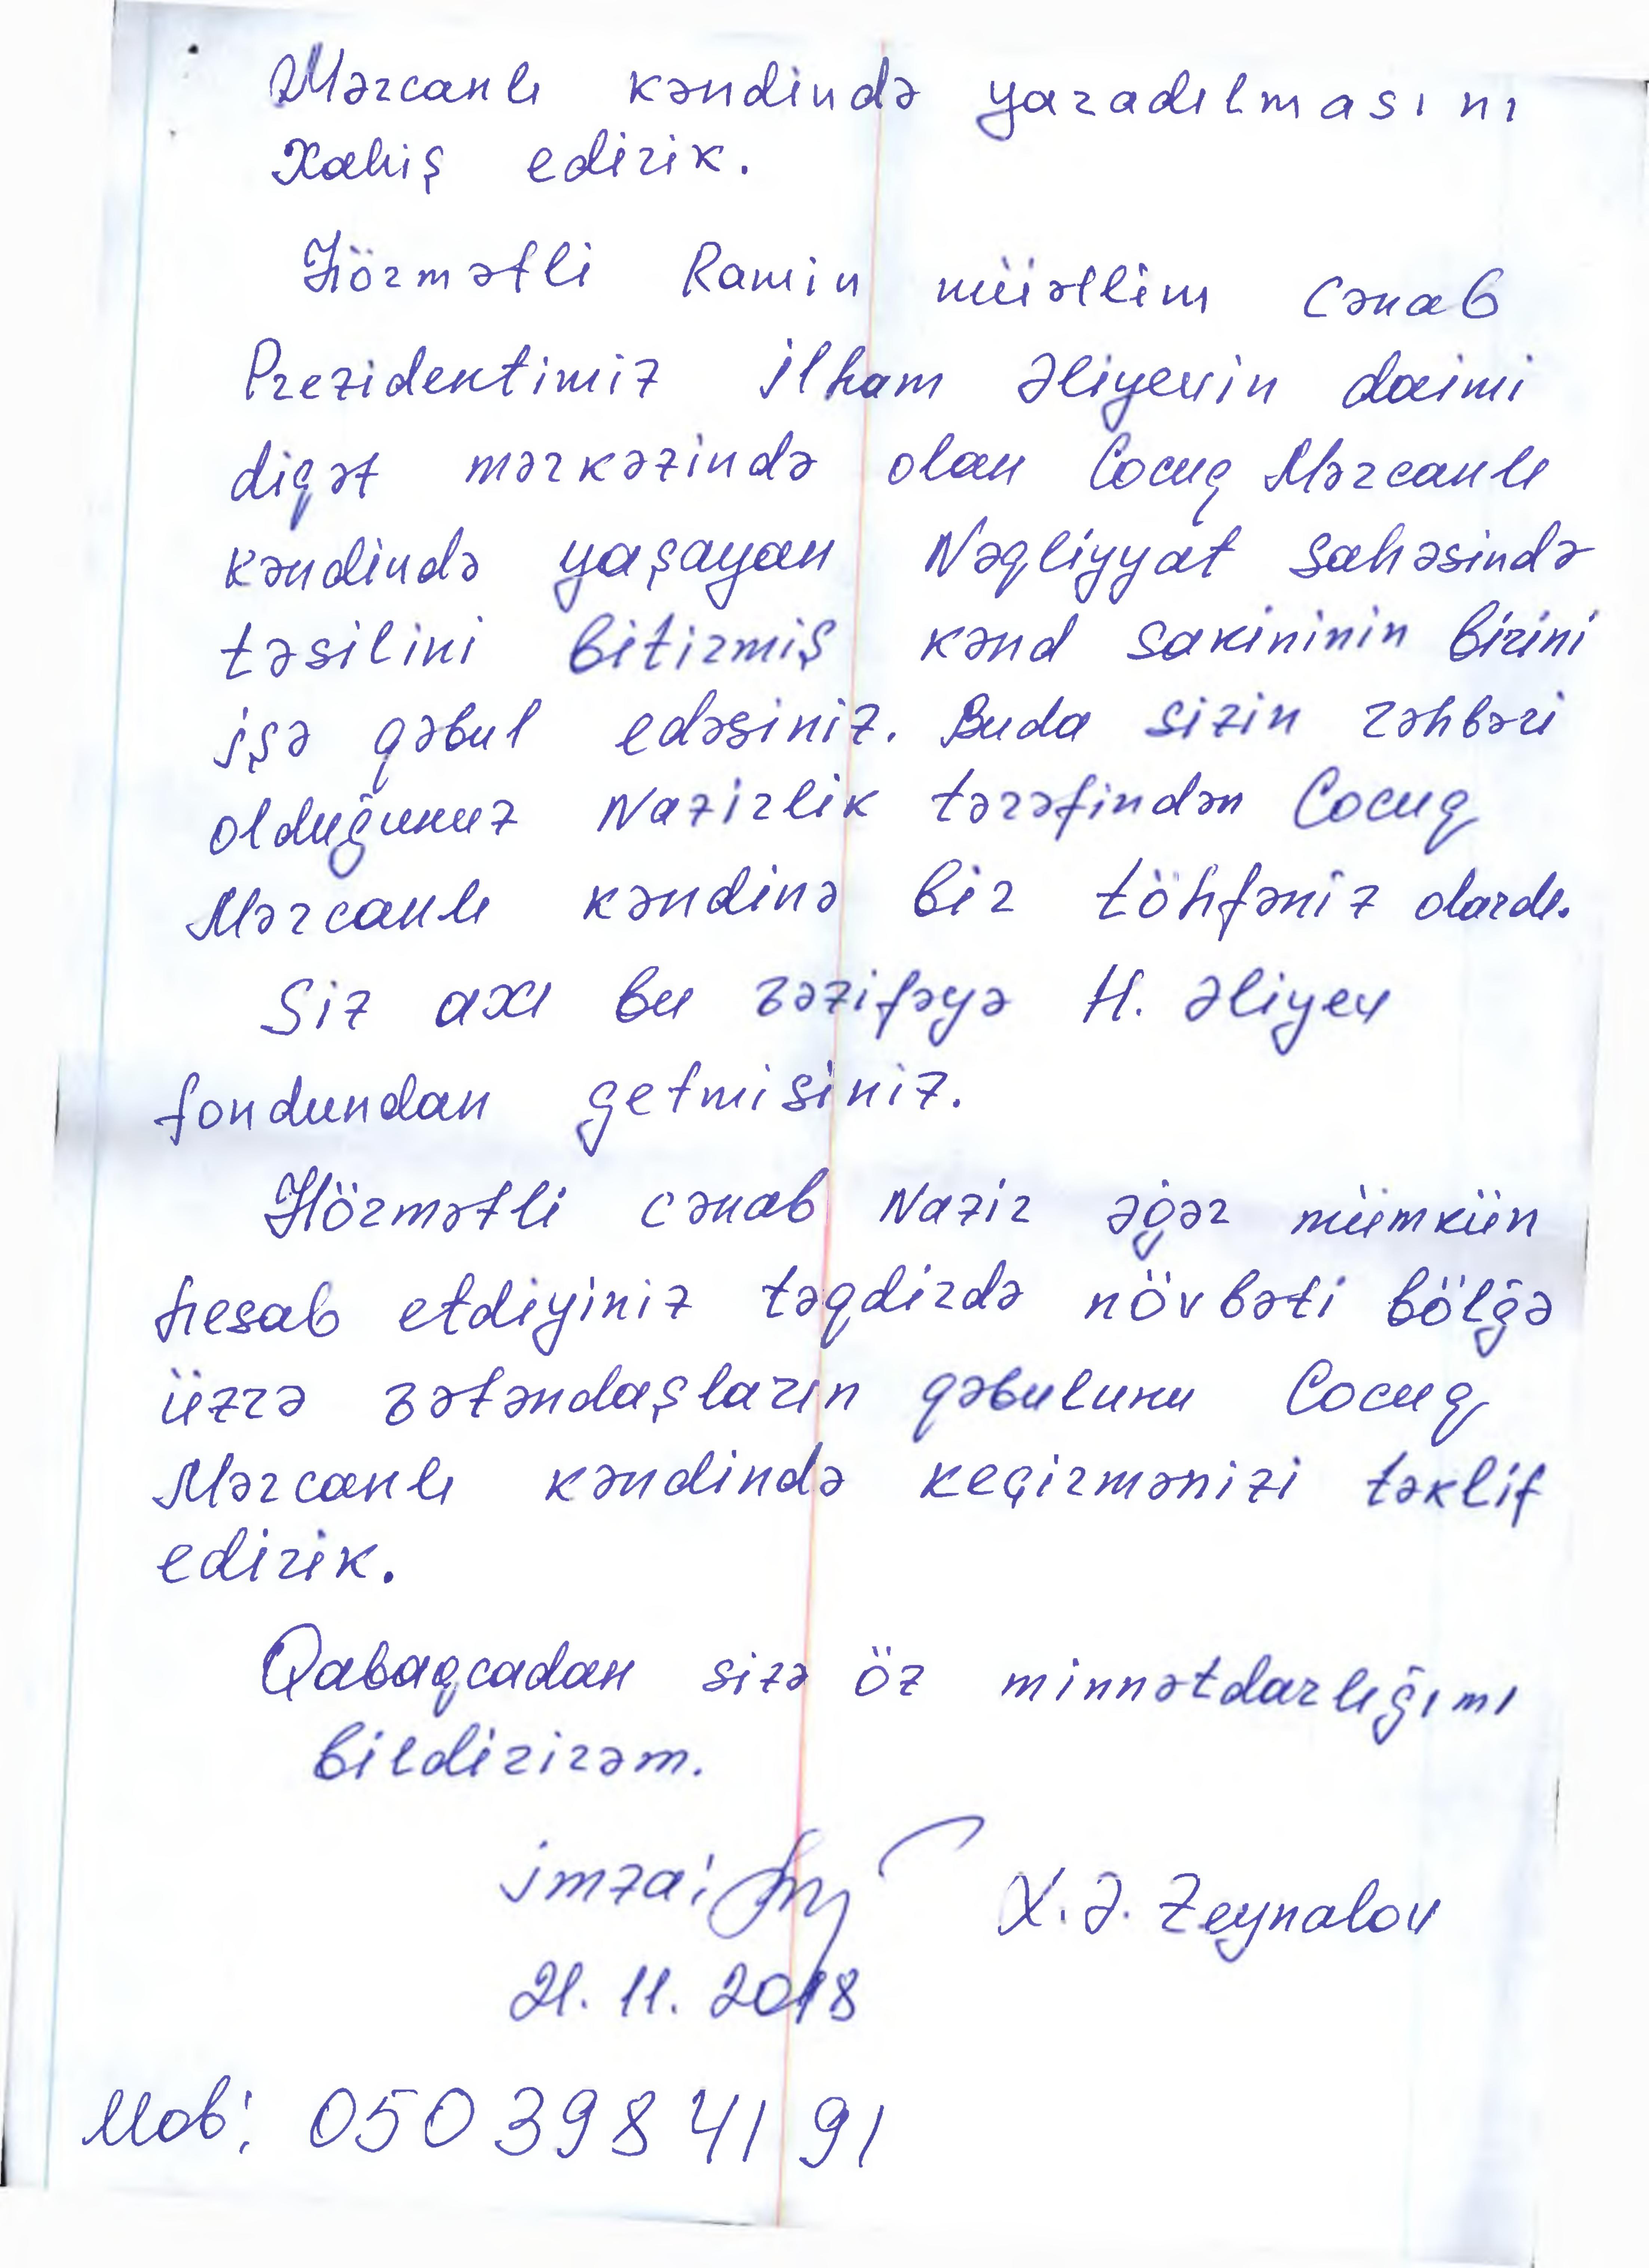 Mərcanlı kəndində yaradılmasını
Xahiş edirik.
Hörmətli Ramin müəllim Cənab
Prezidentimiz İlham Əliyevin daimi
diqət mərkəzində olan Cocuq Mərcanlı
kəndində yaşayan Nəqliyyat sahəsində
təsilini bitirmiş kənd sakininin birini
işə qəbul edəsiniz. Buda sizin rəhbəri
olduğunuz Nazirlik tərəfindən Cocuq
Mərcanlı kəndinə bir töhfəniz olardı.
Siz axı bu vəzifəyə H. Əliyev
fondundan getmisiniz.
Hörmətli cənab Nazir əgər mümkün
hesab etdiyiniz təqdirdə növbəti bölğə
üzrə vətəndaşların qəbulunu Cocuq
Mərcanlı kəndində keçirmənizi təklif
edirik.
Qabaqcadan sizə öz minnətdarlığımı
bildirirəm.
imza: X.Ə. Zeynalov
21.11.2018
Mob: 050 398 41 91